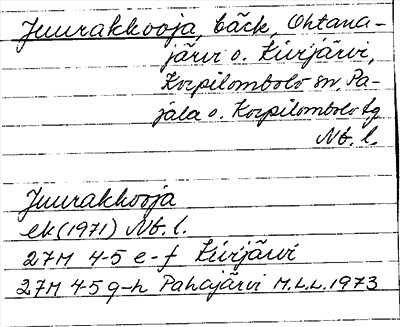 Juurakkooja, bäck, Ohtana-
järvi o. Kivijärvi,
Korpilombolo sn. Pa-
jala o. Korpilombolo tg
Nb. l.
Juurakkooja
ek (1971) Nb. l.
27M 4-5 e-f Kivijärvi
27M 4-5 g-h Pahajärvi M.L.L. 1973